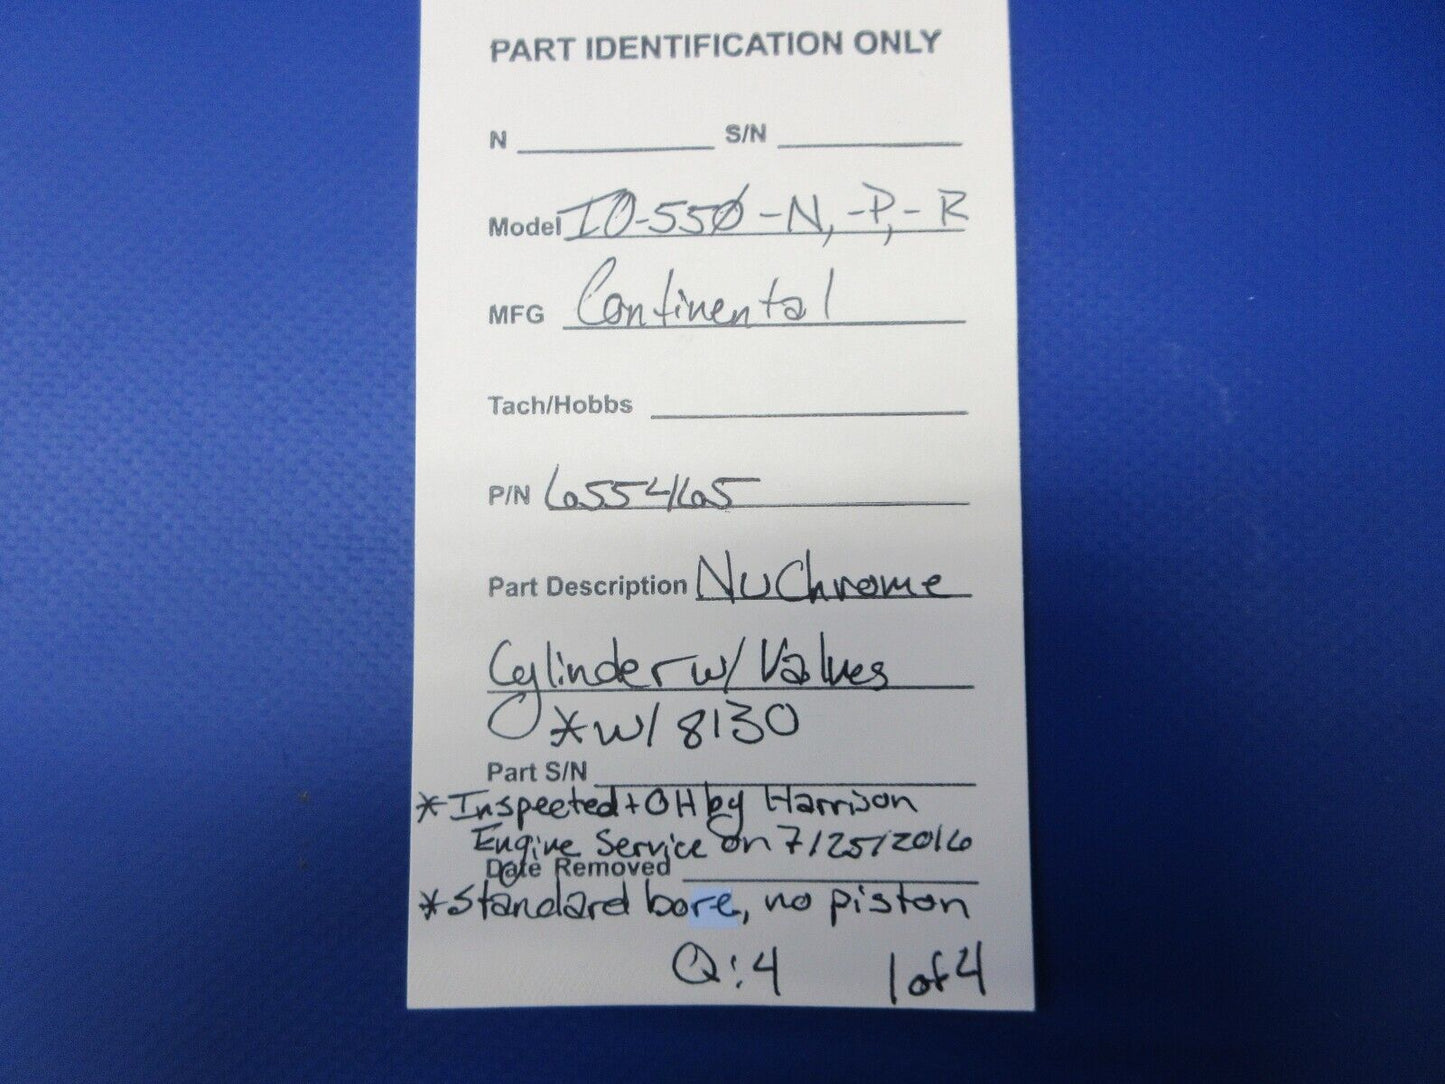 PART IDENTIFICATION ONLY
N S/N
Model IO-550-N, -P, -R
MFG Continental
Tach/Hobbs
P/N 655465
Part Description NuChrome
Cylinder w/ Valves
*w/ 8130
Part S/N
*Inspected + OH by Harrison
Engine Service on 7/25/2016
Date Removed
*Standard bore, no piston
Q:4 1 of 4